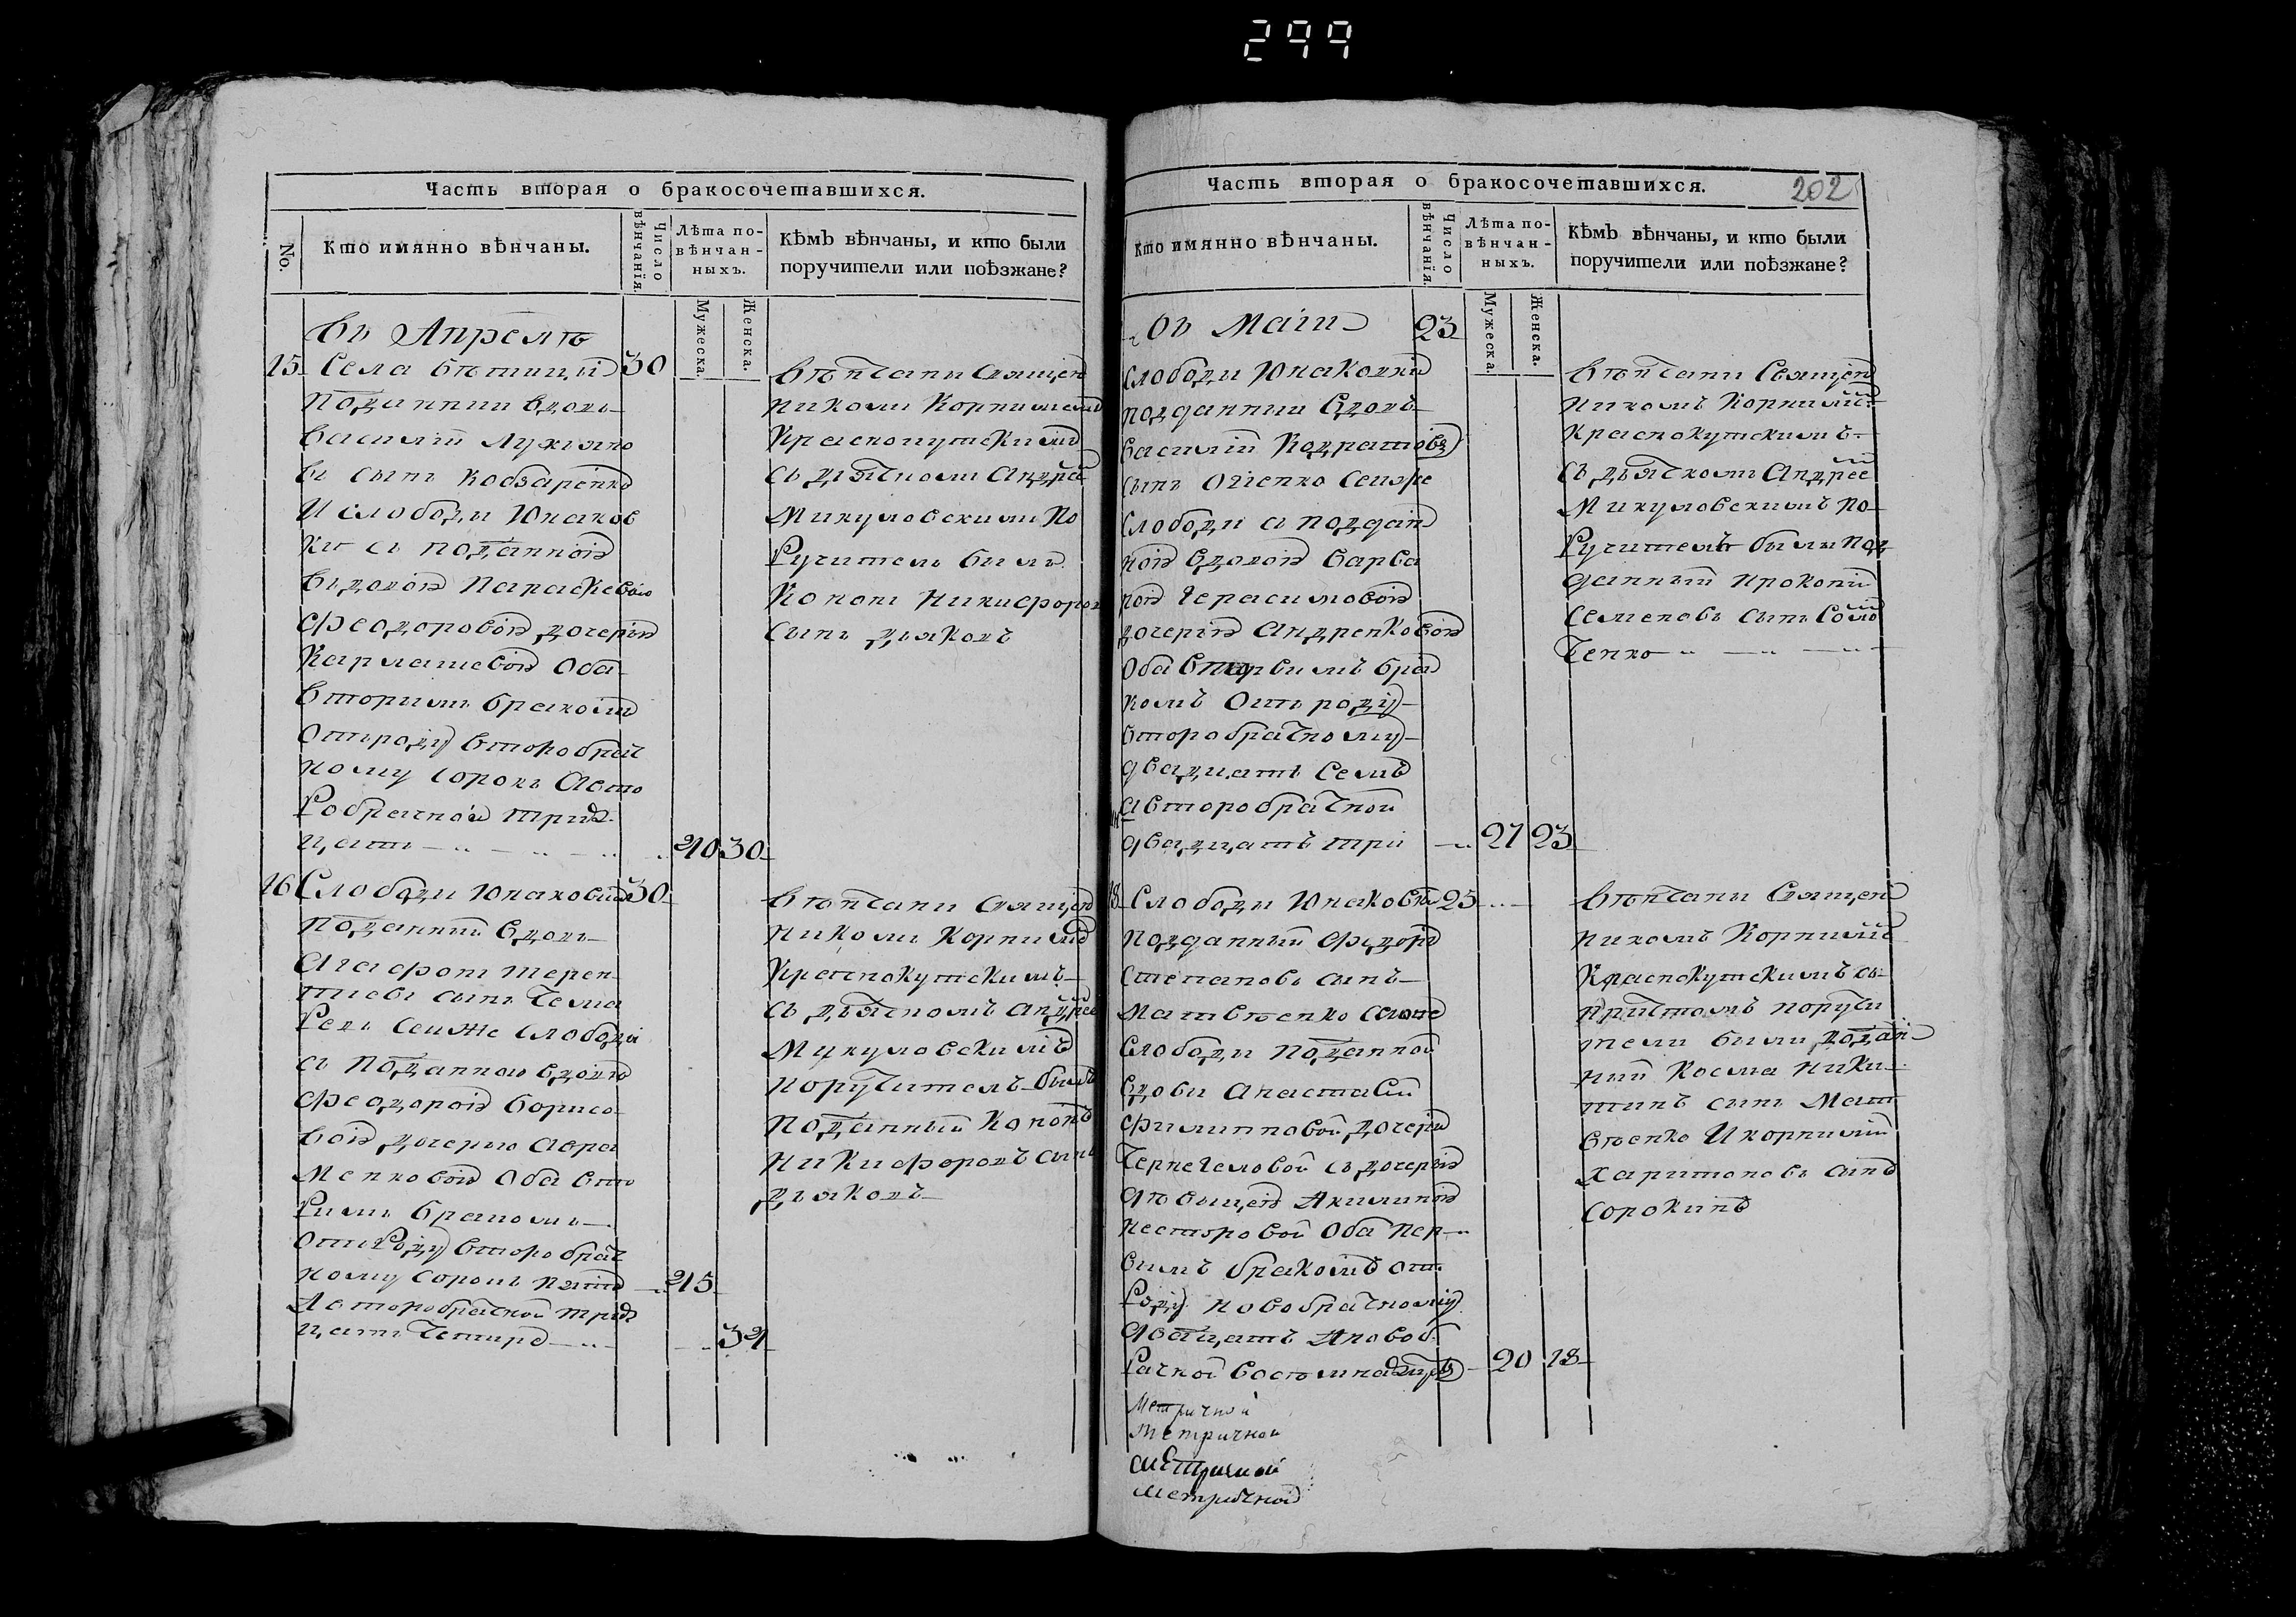 299
Часть вторая о бракосочетавшихся.
No.
Кто имянно вѣнчаны.
Число вѣнчанія.
Лѣта повѣнчанныхъ.
Мужеска.
Женска.
Кѣмъ вѣнчаны, и кто были
поручители или поѣзжане?
въ Апрелѣ
15 Села 30
подданний вдовъ
василій Лукьяно
въ сынъ кобзаренко
И слободи Юнаков
ки съ подданною
вьдовою Параскевою
Феодоровою дочерью
Кармашевой Оба
вторимъ бракомъ
Отъроду второбрач
ному сорокъ Авто
робрачной трид
цать
40 30
вѣнчани Священ
никомъ Корнилиемъ
Краснокутскимъ
съ дьячкомъ Андрее
Микуловскимъ По
ручитель билъ
Конон Никифоров
сынъ дьяковъ
16 Слободи Юнаковки 30
Подданний вдовъ
Агафонъ Терен
тиевъ сынъ
сеи же слободи
съ Подданною вдовою
Феодорой борисо
вой дочерью Авра
менковой Оба вто
римъ бракомъ
отъ Роду второбрач
ному сорокъ пять 45
Авторобрачной трид
цать четире 34
вѣнчани Священ
никомъ Корнилие
Краснокутскимъ
съ дьячкомъ Андрее
Микуловскимъ
поручитель билъ
Подданный Кононъ
Никифоровъ сынъ
дьяковъ
Часть вторая о бракосочетавшихся.
202
Кто имянно вѣнчаны.
Число вѣнчанія.
Лѣта повѣнчанныхъ.
Мужеска.
Женска.
Кѣмъ вѣнчаны, и кто были
поручители или поѣзжане?
Въ Маіи 23
слободи Юнаковки
подданний вдовъ
василій Кодратовъ
сынъ Огіенко Сеияже
Слободи съ поддан
ной вдовой варва
рой Герасимовой
дочерью Андренковой
Оба бра
комъ Отъ роду
второбрачному
двадцать Семъ
авторобрачной
двадцать три 27 23
вѣнчани Священ
никомъ Корнилие
Краснокутскимъ
съ дьячкомъ Андрее
Микуловскимъ по
ручителъ были под
данный Прокопій
Семеновъ сынъ
18 Слободи Юнаковки 25
подданный Федоръ
Степановъ сынъ
Матвѣенко
Слободи подданной
вдови Анастасіи
Филипповой дочери
съ дочерью
дѣвицей Акилиной
Несторовой Оба пер
вымъ бракомъ от
Роду новобрачному
двадцать Новоб
рачной восѣмнадцать 20 18
вѣнчани Священ
никомъ Корнилие
Краснокутскимъ съ
причтомъ поручи
тели били поддан
ний Косма Ники
тинъ сынъ Мат
вѣенко И корнилий
Харитоновъ синъ
Сорокинъ
Метричной
Метричной
Метричной
Метричной